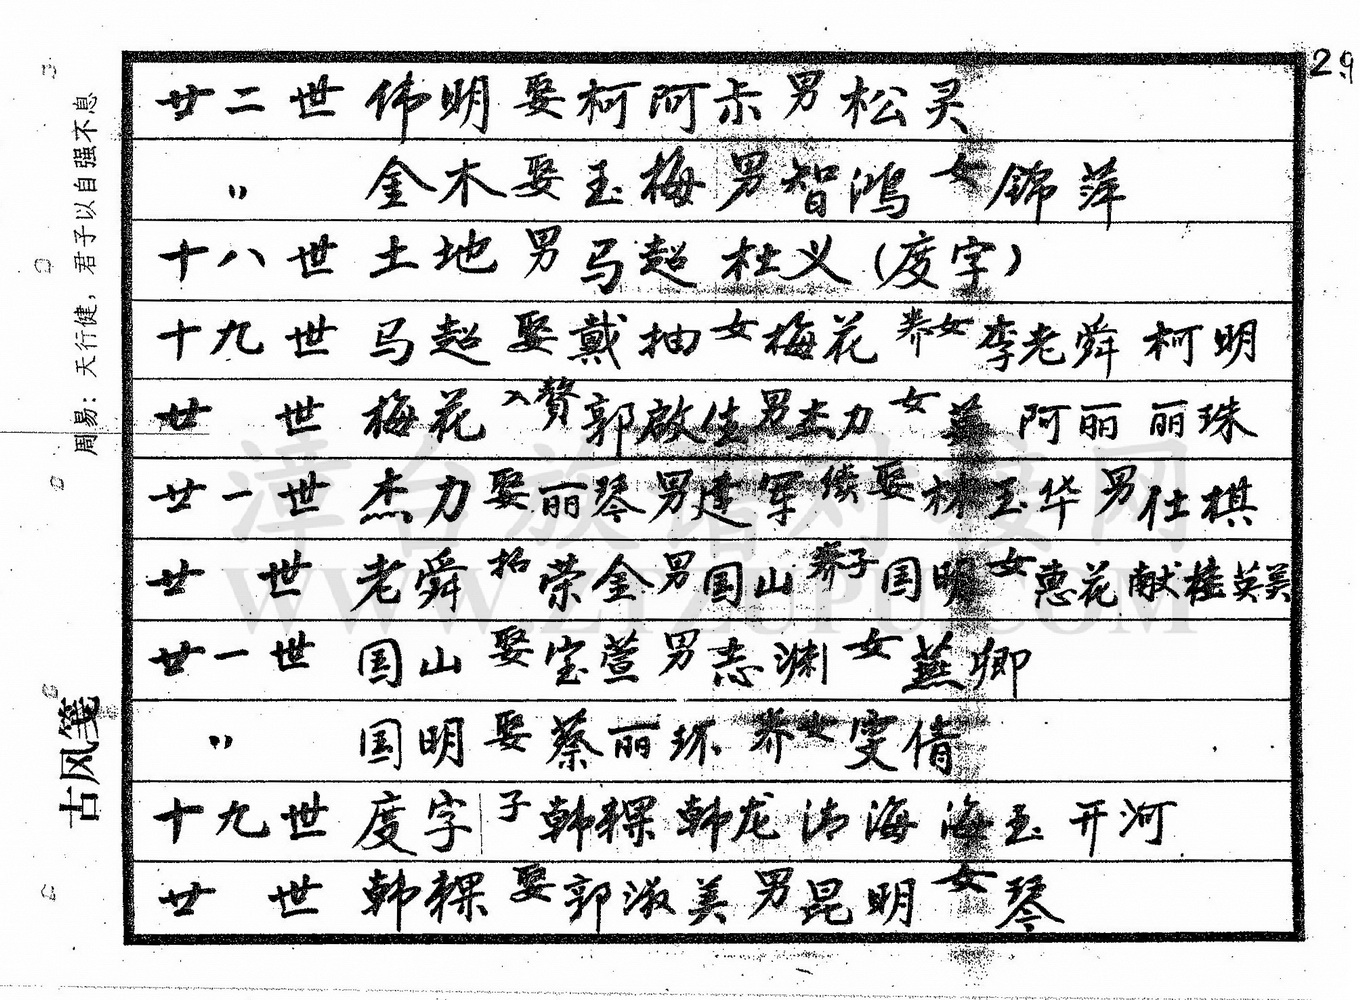 29
廿二世 伟明 娶 柯阿赤 男 松灵
〃 金木 娶 玉梅 男 智鸿 女 錦萍
十八世 土地 男 马超 杜义（度字）
十九世 马超 娶 戴抽 女 梅花 养女 李老舜 柯明
廿 世 梅花 入赘 郭啟生 男 杰力 女 英 阿丽 丽珠
廿一世 杰力 娶 丽琴 男 建军 续娶 林玉华 男 仕棋
廿 世 老舜 招 荣金 男 国山 养子 国明 女 惠花 献桂 英美
廿一世 国山 娶 宝萱 男 志渊 女 燕卿
〃 国明 娶 蔡丽环 养女 雯倩
十九世 度字 子 韩稞 韩龙 清海 海玉 开河
廿 世 韩稞 娶 郭淑美 男 昆明 女 琴
周易：天行健，君子以自强不息
古风笺
漳台族谱对接网
WWW.ZTZUPU.COM